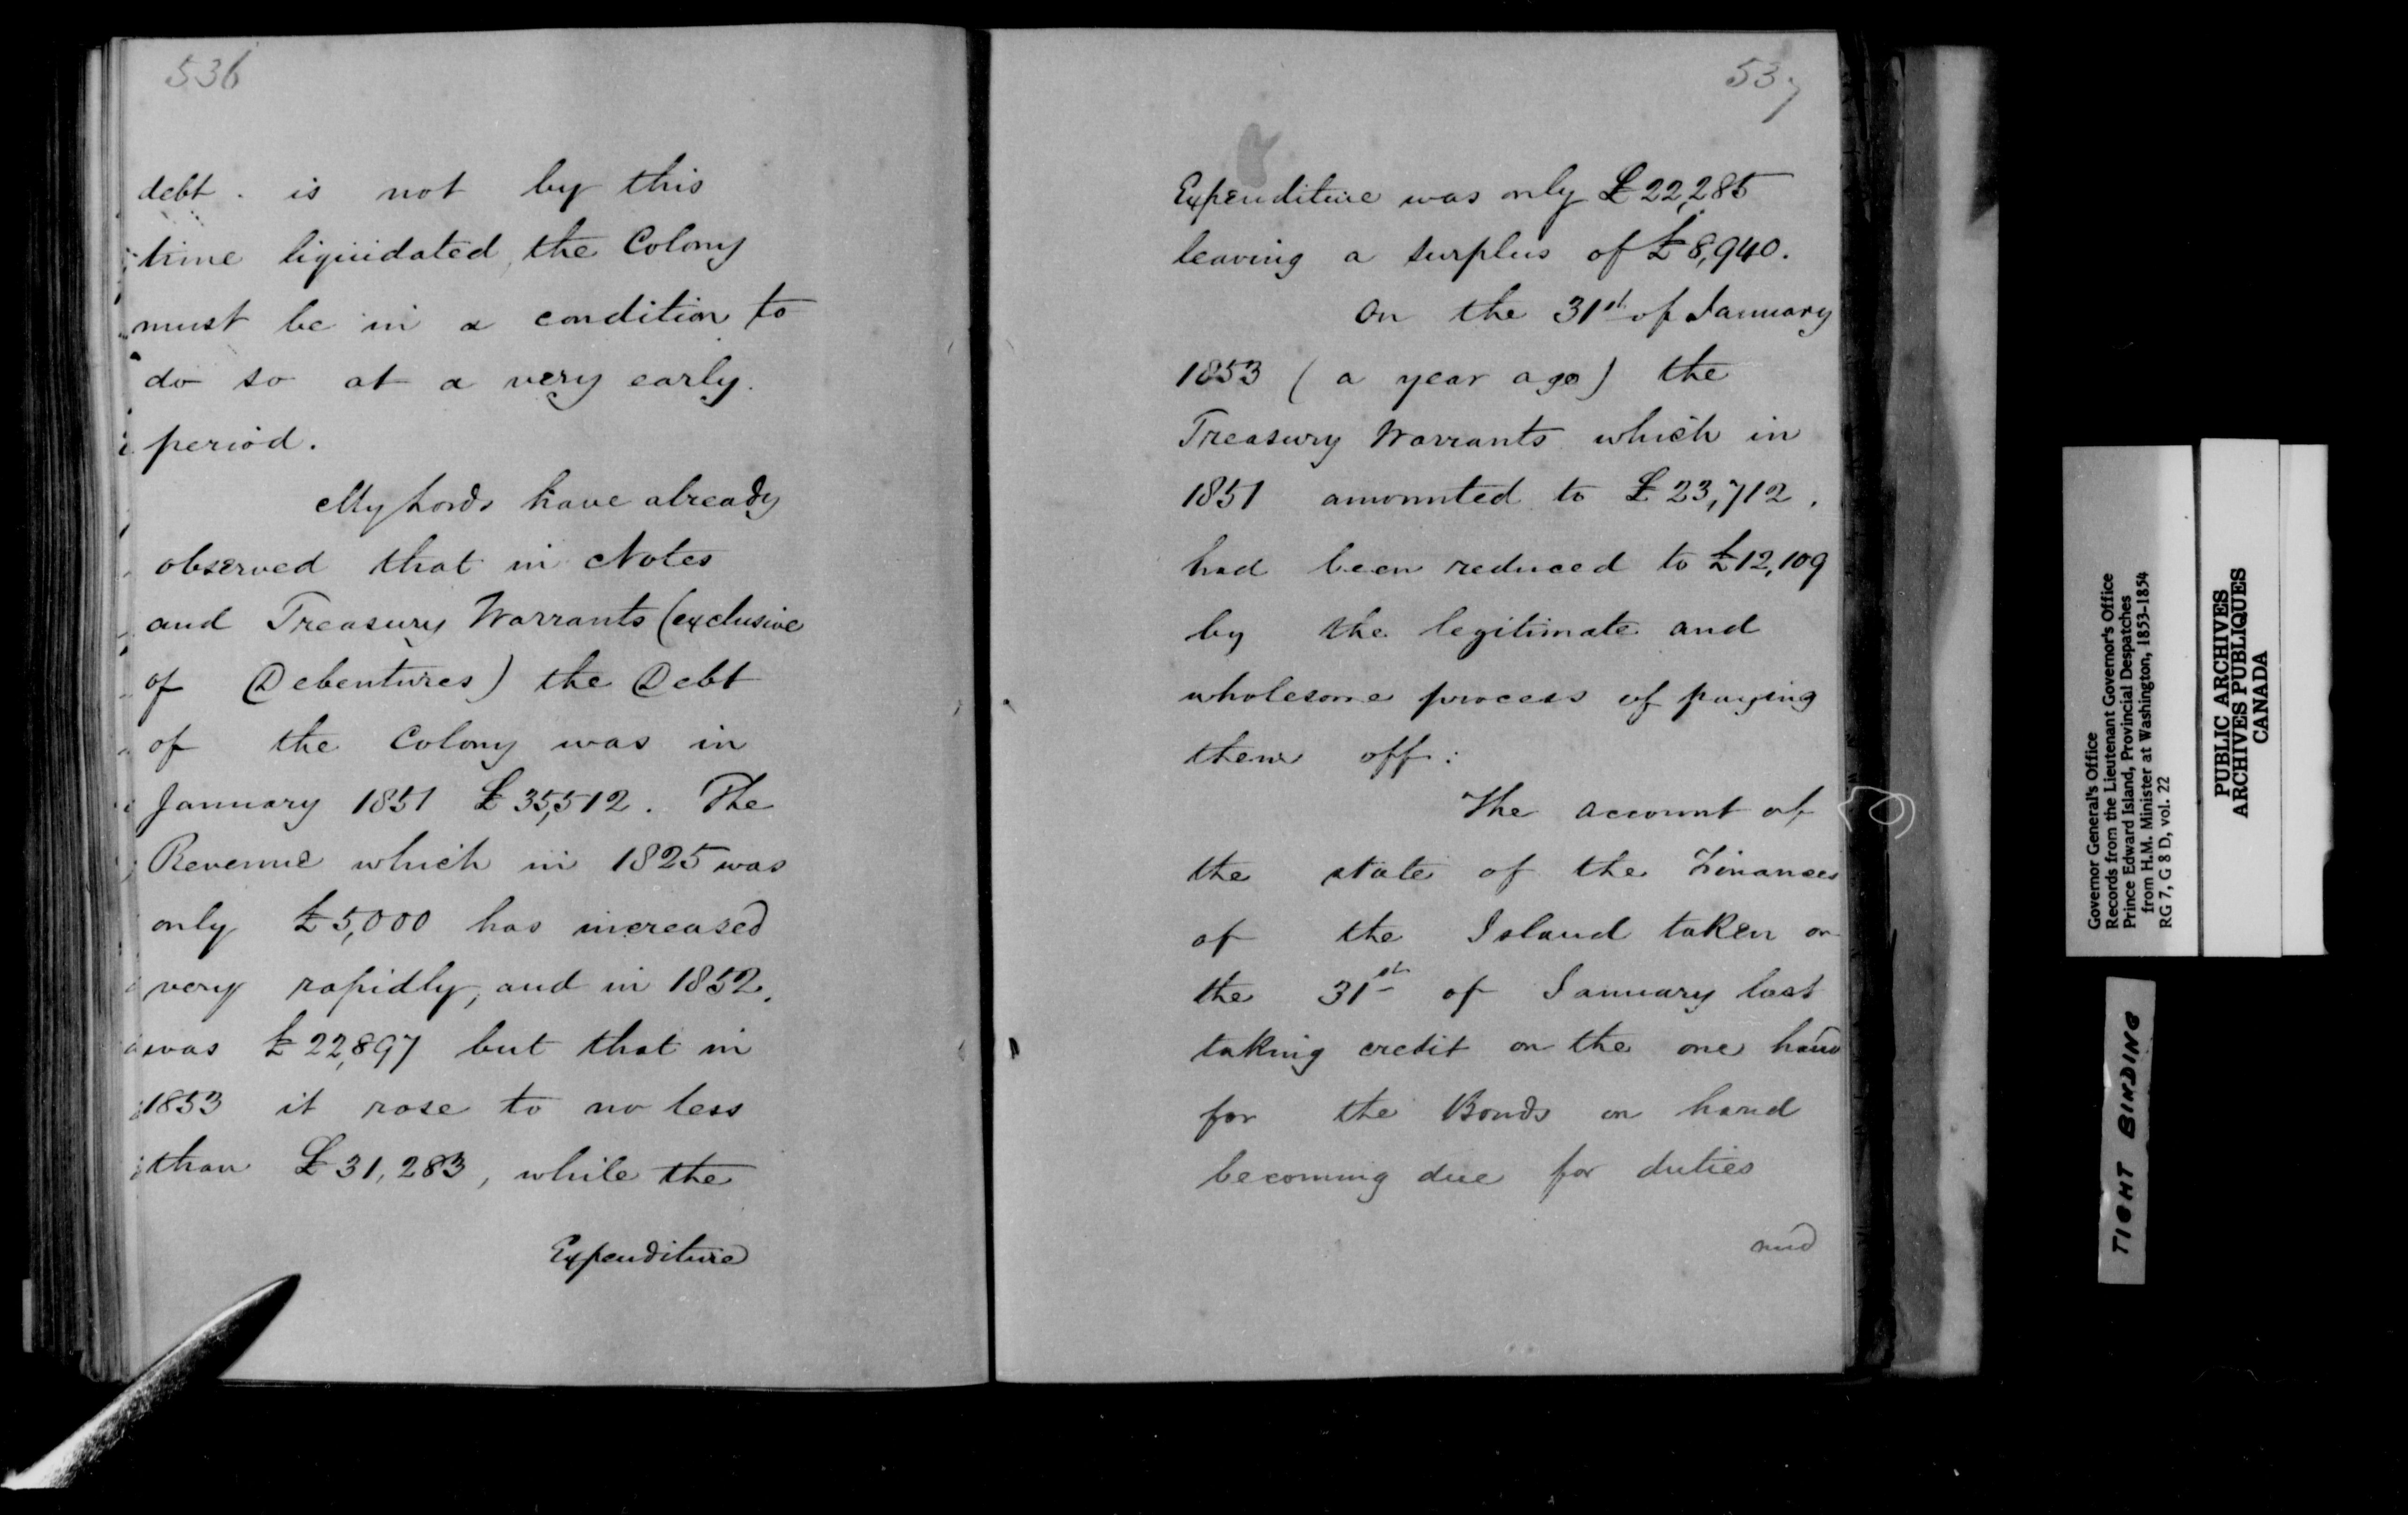 536
debt. is not by this
time liquidated, the Colony
must be in a condition to
do so at a very early.
period.
My Lords have already
observed that in Notes
and Treasury Warrants (exclusive
of Debentures) the Debt
of the Colony was in
January 1851 £35,512. The
Revenue which in 1825 was
only £5,000 has increased
very rapidly, and in 1852.
was £22,897 but that in
1853 it rose to no less
than £31,283, while the
Expenditure
537
Expenditure was only £22,285
leaving a surplus of £8,940.
On the 31st of January
1853 (a year ago) the
Treasury Warrants which in
1851 amounted to £23,712.
had been reduced to £12,109
by the legitimate and
wholesome process of paying
them off:
The account of
the state of the Finances
of the Island taken on
the 31st of January last
taking credit on the one hand
for the Bonds on hand
becoming due for duties
and
Governor General's Office
Records from the Lieutenant Governor's Office
Prince Edward Island, Provincial Despatches
from H.M. Minister at Washington, 1853-1854
RG 7, G 8 D, vol. 22
PUBLIC ARCHIVES
ARCHIVES PUBLIQUES
CANADA
TIGHT BINDING